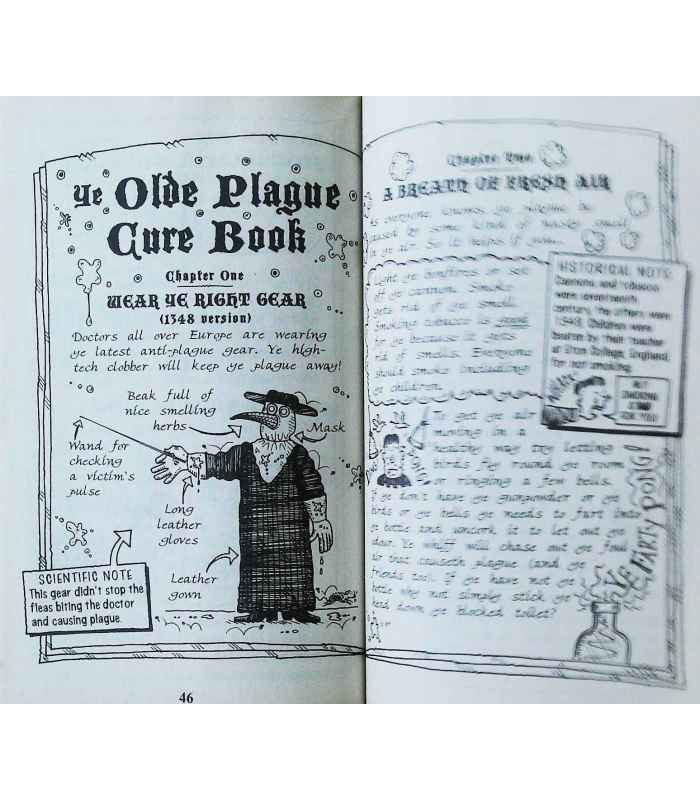 Ye Olde Plague
Cure Book
Chapter One
WEAR YE RIGHT GEAR
(1348 version)
Doctors all over Europe are wearing
ye latest anti-plague gear. Ye high-
tech clobber will keep ye plague away!
Beak full of
nice smelling
herbs
Mask
Wand for
checking
a victim's
pulse
Long
leather
gloves
Leather
gown
SCIENTIFIC NOTE
This gear didn't stop the
fleas biting the doctor
and causing plague.
46
Chapter
A BREATH OF FRESH AIR
As everyone knows ye plague be
caused by some kind of smell
in ye air. So it helps if you...
Light ye bonfires or set
off ye cannon. Smoke
gets rid of ye smell.
Smoking tobacco is good
for ye because it gets
rid of smells. Everyone
should smoke including
ye children.
HISTORICAL NOTE
Cannons and tobacco
were seventeenth
century, the others were
1348. Children were
beaten by their teacher
at Eton College, England,
for not smoking.
SMOKING
IS
FOR YOU
To get ye air
moving in a
healthy way try letting
fly round ye room
or ringing a few bells.
If ye don't have ye gunpowder or ye
birds or ye bells ye needs to fart into
ye bottle and uncork it to let out ye
odour. Ye whiff will chase out ye foul
air that causeth plague (and ye
friends too). If ye have not ye
bottle why not simply stick ye
head down ye blocked toilet?
Ye FARTY PONG!